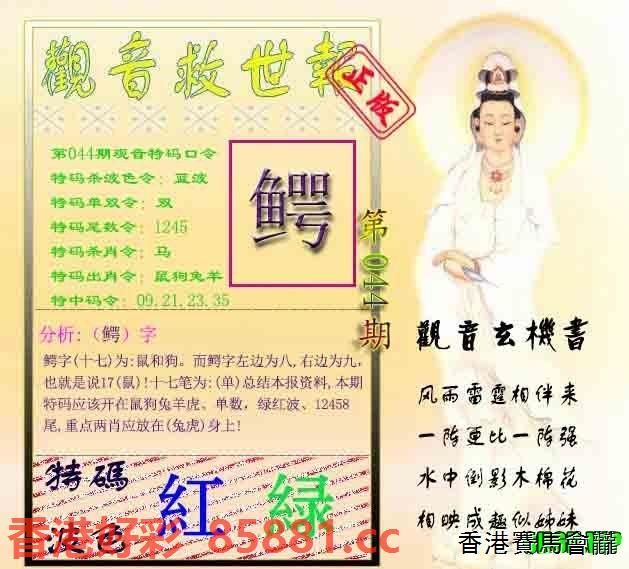 觀音救世報
正版
第044期观音特码口令
特码杀波色令: 蓝波
特码单双令: 双
特码尾数令: 1245
特码杀肖令: 马
特码出肖令: 鼠狗兔羊
特中码令: 09.21.23.35
鳄
第044期
分析:（鳄）字
鳄字(十七)为:鼠和狗。而鳄字左边为八,右边为九,
也就是说17(鼠)!十七笔为:(单)总结本报资料,本期
特码应该开在鼠狗兔羊虎、单数，绿红波、12458
尾,重点两肖应放在(兔虎)身上!
特碼
波色
紅 绿
觀音玄機書
风雨雷霆相伴来
一阵更比一阵强
水中倒影木棉花
相映成趣似姊妹
香港好彩 85881.cc
香港賽馬會